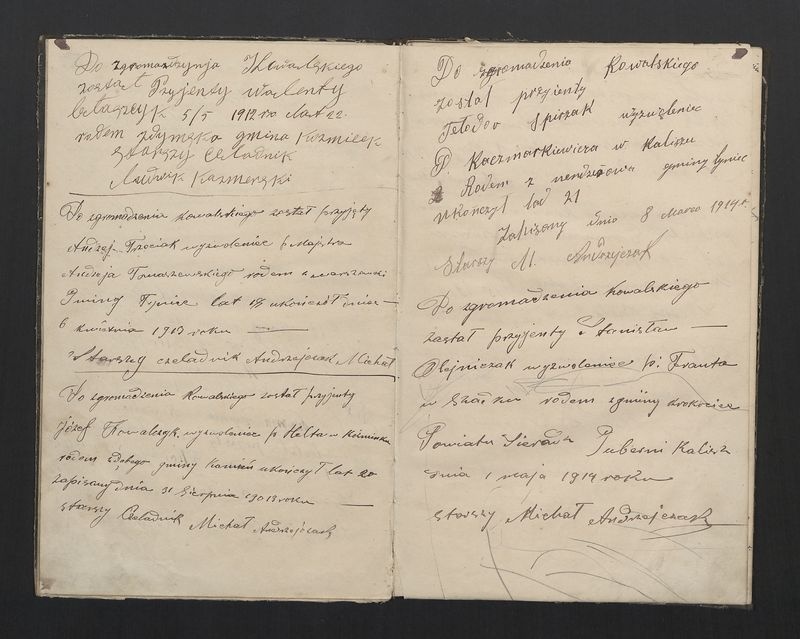 Do zgromadzynja Kowalskiego
zostat Przyjenty walenty
5/5 1912 ro Lat 22
rodem gmina Kozminek
Starszy Celadnik
Ludwik Kazmerski
Do zgromadzenia kowalskiego zostal przyjęty
Andrzej Trociak wyzwoleniec p Majstra
Andrzeja Tomaszewskiego rodem z warszawki
Gminy Tyniec lat 18 ukończoł dnia
6 kwietnia 1913 roku
Starszy czeladnik Andrzejczak Michał
Do zgromadzenia Kowalskiego został przyjenty
józef Kowalczyk wyzwoleniec p Helta w Kózminku
rodem gminy Kamień ukończył lat 20
zapisany dnia 31 Sierpnia 1913 roku
starszy Czeladnik Michał Andrzejczak
Do zgromadzenia Kowalskiego
zostal przyienty
Teledor Spiczak wyzwoleniec
P. Kaczmarkiewicza w Kaliszu
Rodem z gminy tyniec
Ukończył lad 21
Zapisany dnia 8 Marca 1914 r.
Starszy M. Andrzejczak
Do zgromadzenia Kowalskiego
został przyjenty Stanisław
Olejniczak wyzwoleniec p. Franta
w Szadku rodem zgminy krokocice
Powiatu Sieradz Guberni Kalisz
dnia 1 maja 1914 roku
starszy Michał Andrzejczak